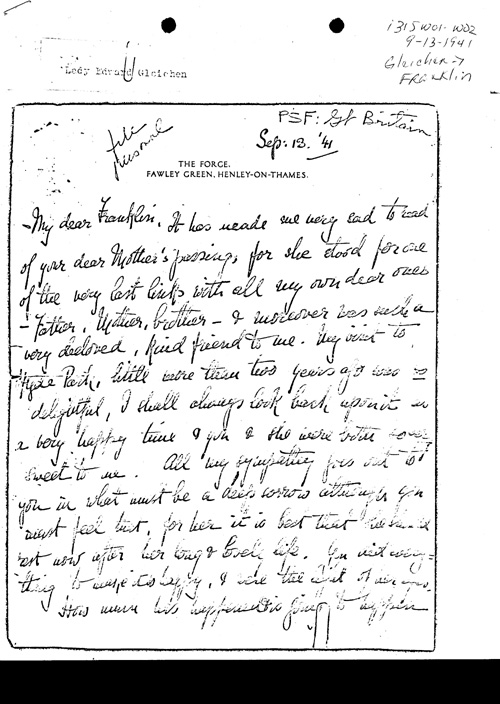 i315w01-w02
9-13-1941
Gleichen →
Franklin
Lady Edward Gleichen
PSF: Gt Britain
file
personal
Sep. 13. '41
THE FORCE.
FAWLEY GREEN, HENLEY-ON-THAMES.
My dear Franklin. It has made me very sad to read
of your dear Mother's passing, for she stood for one
of the very last links with all my own dear ones
– Father, Mother, brother – & moreover was such a
very beloved, kind friend to me. My visit to
Hyde Park, little more than two years ago was so
delightful, I shall always look back upon it as
a very happy time & you & she were both
sweet to me. All my sympathy goes out to
you in what must be a deep sorrow although you
must feel that, for her it is best that
rest now after her long & lovely life. You did every-
thing to make it happy, & were the light of her eyes.
How much has happened & is going to happen